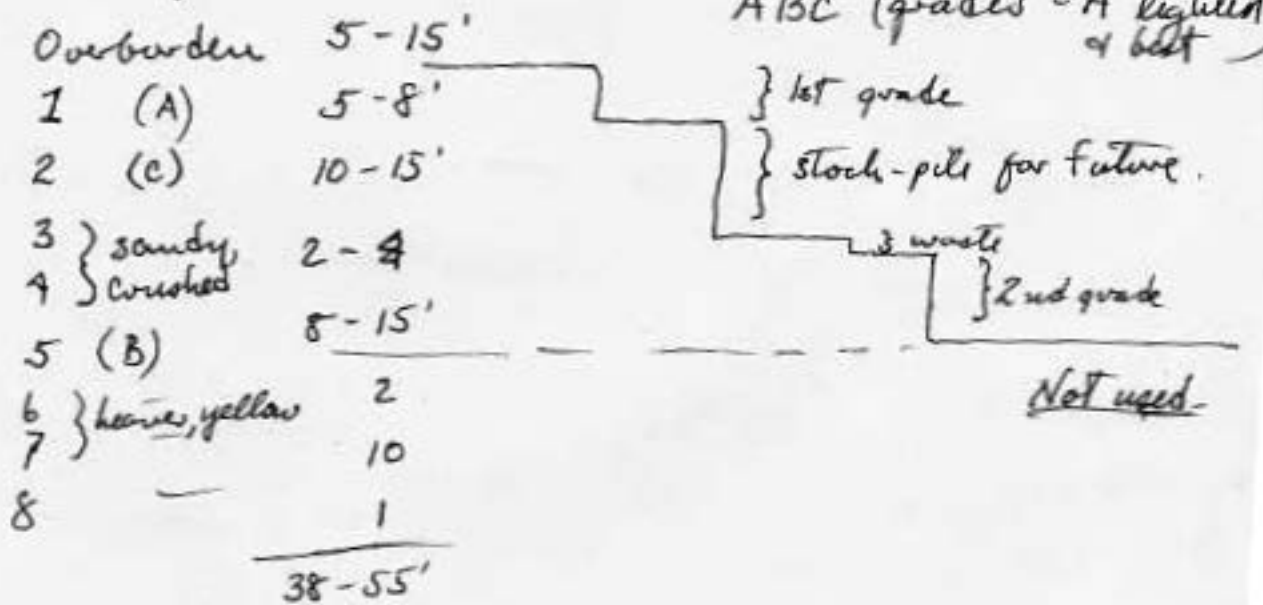 ABC (grades - A lightest
& best)
Overburden 5-15'
1 (A) 5-8' } 1st grade
2 (C) 10-15' } stock-pile for future.
3 } sandy, 2-4 } waste
4 } crushed
8-15' } 2nd grade
5 (B)
6 } heavier, yellow 2 Not used.
7 10
8 — 1
38-55'